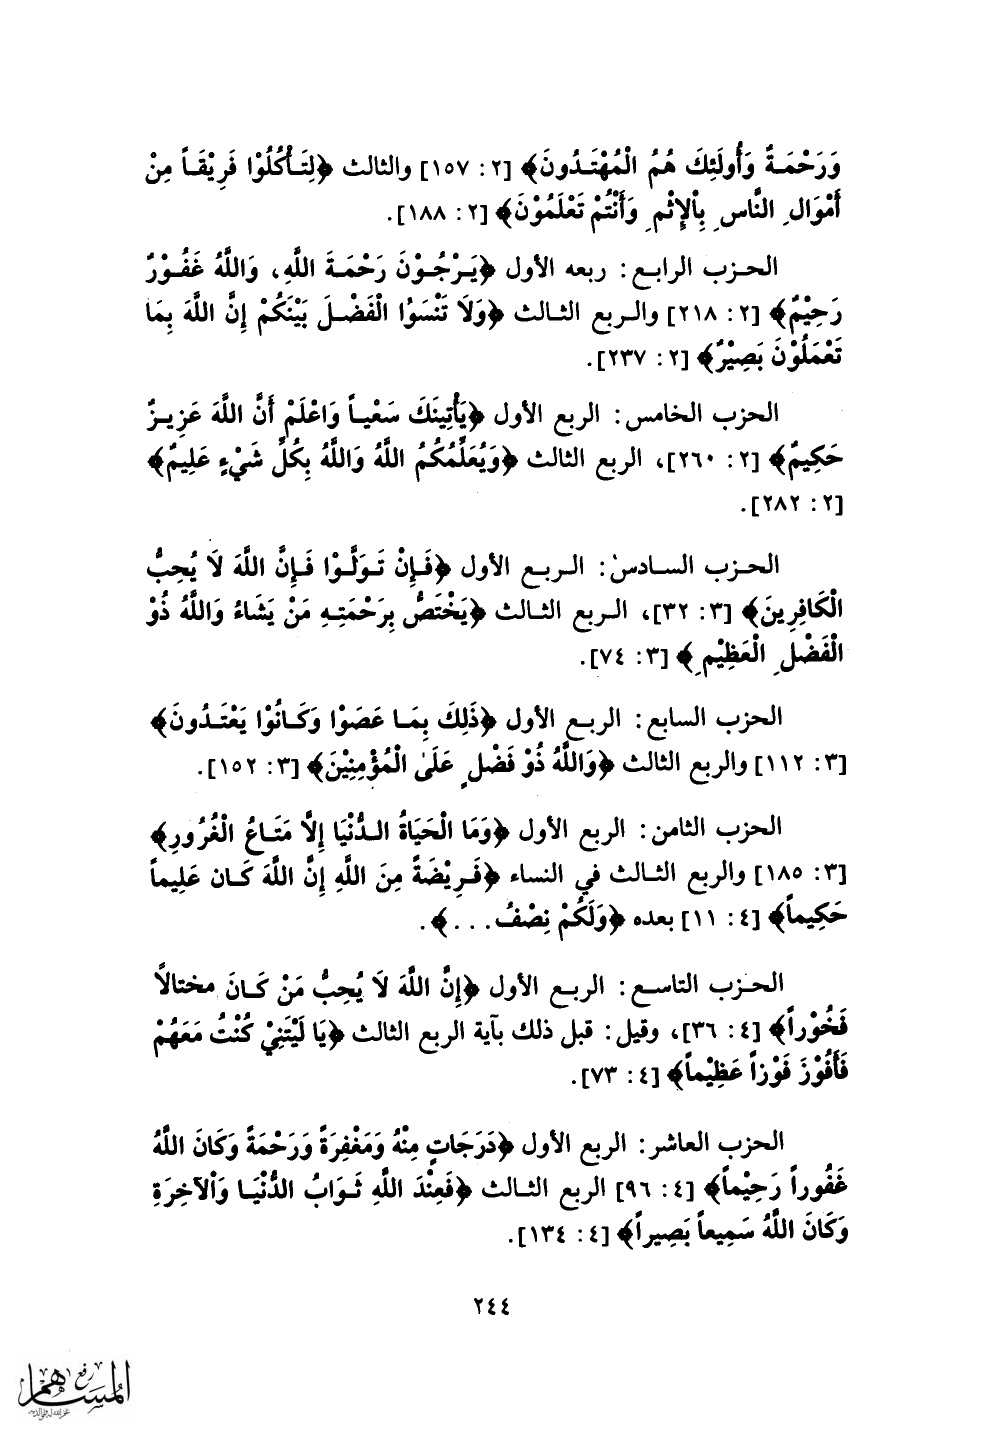 وَرَحْمَةٌ وَأُولَئِكَ هُمُ الْمُهْتَدُونَ﴾ [٢: ١٥٧] والثالث ﴿لِتَأْكُلُوْا فَرِيْقَاً مِنْ
أَمْوَالِ النَّاسِ بِاْلإِثْمِ وَأَنْتُمْ تَعْلَمُوْنَ﴾ [٢: ١٨٨].
الحزب الرابع: ربعه الأول ﴿يَرْجُوْنَ رَحْمَةَ اللَّهِ، وَاللَّهُ غَفُوْرٌ
رَحِيْمٌ﴾ [٢: ٢١٨] والربع الثالث ﴿وَلَا تَنْسَوُا الْفَضْلَ بَيْنَكُمْ إِنَّ اللَّهَ بِمَا
تَعْمَلُوْنَ بَصِيْرٌ﴾ [٢: ٢٣٧].
الحزب الخامس: الربع الأول ﴿يَأْتِينَكَ سَعْياً وَاعْلَمْ أَنَّ اللَّهَ عَزِيزٌ
حَكِيمٌ﴾ [٢: ٢٦٠]، الربع الثالث ﴿وَيُعَلِّمُكُمُ اللَّهُ وَاللَّهُ بِكُلِّ شَيْءٍ عَلِيمٌ﴾
[٢: ٢٨٢].
الحزب السادس: الربع الأول ﴿فَإِنْ تَوَلَّوْا فَإِنَّ اللَّهَ لَا يُحِبُّ
الْكَافِرِينَ﴾ [٣: ٣٢]، الربع الثالث ﴿يَخْتَصُّ بِرَحْمَتِهِ مَنْ يَشَاءُ وَاللَّهُ ذُوْ
الْفَضْلِ الْعَظِيْمِ﴾ [٣: ٧٤].
الحزب السابع: الربع الأول ﴿ذَلِكَ بِمَا عَصَوْا وَكَانُوْا يَعْتَدُونَ﴾
[٣: ١١٢] والربع الثالث ﴿وَاللَّهُ ذُوْ فَضْلٍ عَلَىٰ الْمُؤْمِنِيْنَ﴾ [٣: ١٥٢].
الحزب الثامن: الربع الأول ﴿وَمَا الْحَيَاةُ الدُّنْيَا إِلَّا مَتَاعُ الْغُرُورِ﴾
[٣: ١٨٥] والربع الثالث في النساء ﴿فَرِيْضَةً مِنَ اللَّهِ إِنَّ اللَّهَ كَان عَلِيماً
حَكِيماً﴾ [٤: ١١] بعده ﴿وَلَكُمْ نِصْفُ...﴾.
الحزب التاسع: الربع الأول ﴿إِنَّ اللَّهَ لَا يُحِبُّ مَنْ كَانَ مختالاً
فَخُوْراً﴾ [٤: ٣٦]، وقيل: قبل ذلك بآية الربع الثالث ﴿يَا لَيْتَنِيْ كُنْتُ مَعَهُمْ
فَأَفُوْزَ فَوْزاً عَظِيْماً﴾ [٤: ٧٣].
الحزب العاشر: الربع الأول ﴿دَرَجَاتٍ مِنْهُ وَمَغْفِرَةً وَرَحْمَةً وَكَانَ اللَّهُ
غَفُوراً رَحِيْماً﴾ [٤: ٩٦] الربع الثالث ﴿فَعِنْدَ اللَّهِ ثَوَابُ الدُّنْيَا وَاْلآخِرَةِ
وَكَانَ اللَّهُ سَمِيعاً بَصِيراً﴾ [٤: ١٣٤].
٢٤٤
رفع
المساهم